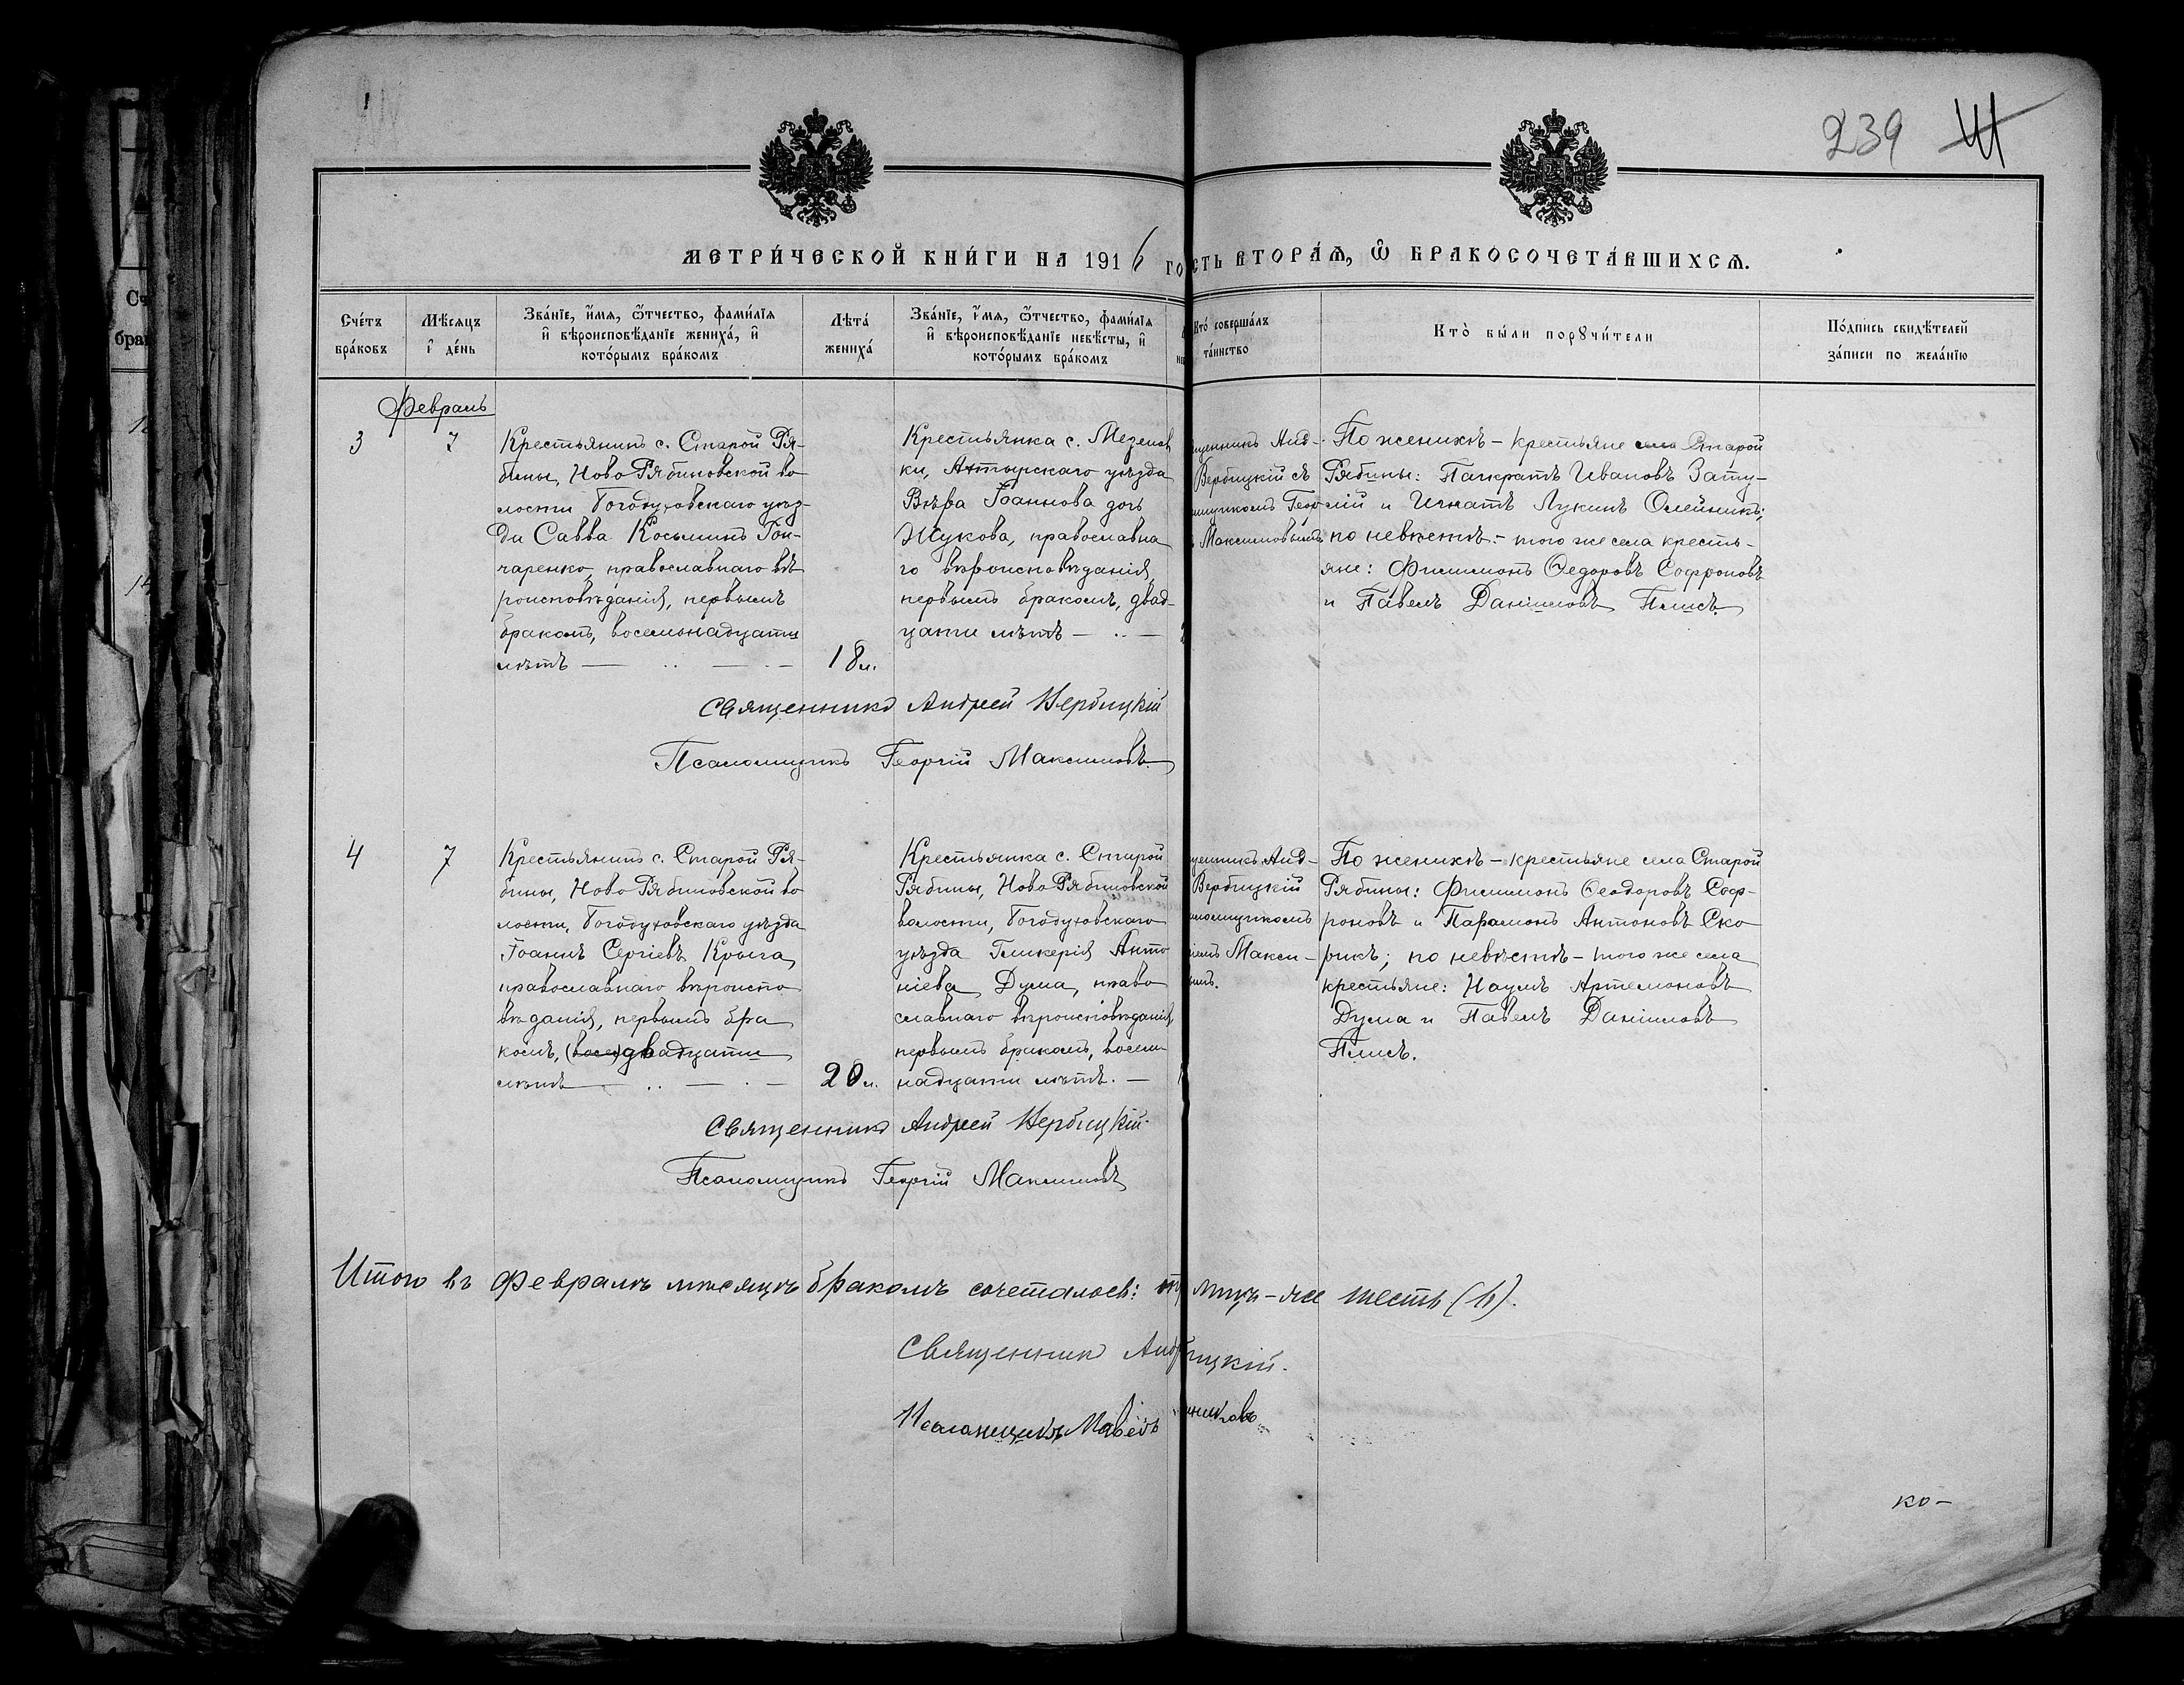 239
МЕТРИЧЕСКОЙ КНИГИ НА 1916 ГО
СТЬ ВТОРАЯ, Ѡ БРАКОСОЧЕТАВШИХСЯ.
Счетъ браковъ
Мѣсяцъ и день
Званїе, имя, ѿчество, фамилїя и вѣроисповѣданїе жениха, и которымъ бракомъ
Лѣта жениха
Званїе, имя, ѿчество, фамилїя и вѣроисповѣданїе невѣсты, и которымъ бракомъ
Кто совершалъ таинство
Кто были порꙋчители
Подпись свидѣтелей записи по желанїю
Февраль
3
7
Крестьянинъ с. Старой Ря-
бины, Ново Рябиновской во
лости Богодуховскаго уѣз-
да Савва Косьминъ Гон-
чаренко, православнаго вѣ
роисповѣданія, первымъ
бракомъ, восемьнадцати
лѣтъ
18 л.
Крестьянка с. Мезенов
ки, Ахтырскаго уѣзда
Вѣра Іоаннова дочь
Жукова, православна
го вѣроисповѣданія,
первымъ бракомъ, двад-
цати лѣтъ
щенникъ Анд-
Вербицкій съ
мщикомъ Геор
Максимовымъ
По женихѣ - крестьяне села Старой
Рябины: Панкратъ Ивановъ Зату-
лій и Игнатъ Лукинъ Олейникъ;
по невѣстѣ:- того же села кресть-
яне: Филимонъ Ѳедоровъ Софроновъ
и Павелъ Даніиловъ Плисъ.
Священникъ Андрей Вербицкій
Псаломщикъ Георгій Максимовъ
4
7
Крестьянинъ с. Старой Ря-
бины, Ново Рябиновской во
лости, Богодуховскаго уѣзда
Іоаннъ Сергіевъ Крыга,
православнаго вѣроиспо
вѣданія, первымъ бра
комъ, (восем) двадцати
лѣтъ
20 л.
Крестьянка с. Старой
Рябины, Ново Рябиновской
волости, Богодуховскаго
уѣзда Гликерія Анто
ніева Дума, право
славнаго вѣроисповѣданія,
первымъ бракомъ, восем
надцати лѣтъ.
щенникъ Анд-
Вербицкій
ломщикомъ
іемъ Макси-
ымъ.
По женихѣ - крестьяне села Старой
Рябины: Филимонъ Ѳеодоровъ Соф-
роновъ и Парамонъ Антоновъ Ско
рикъ; по невѣстѣ - того же села
крестьяне: Наумъ Артемоновъ
Дума и Павелъ Даніиловъ
Плисъ.
Священникъ Андрей Вербицкій.
Псаломщикъ Георгій Максимовъ
Итого въ Февралѣ мѣсяцѣ бракомъ сочеталось:
шесть (6).
Священник Анд
ицкій.
Псаломщикъ
ко-